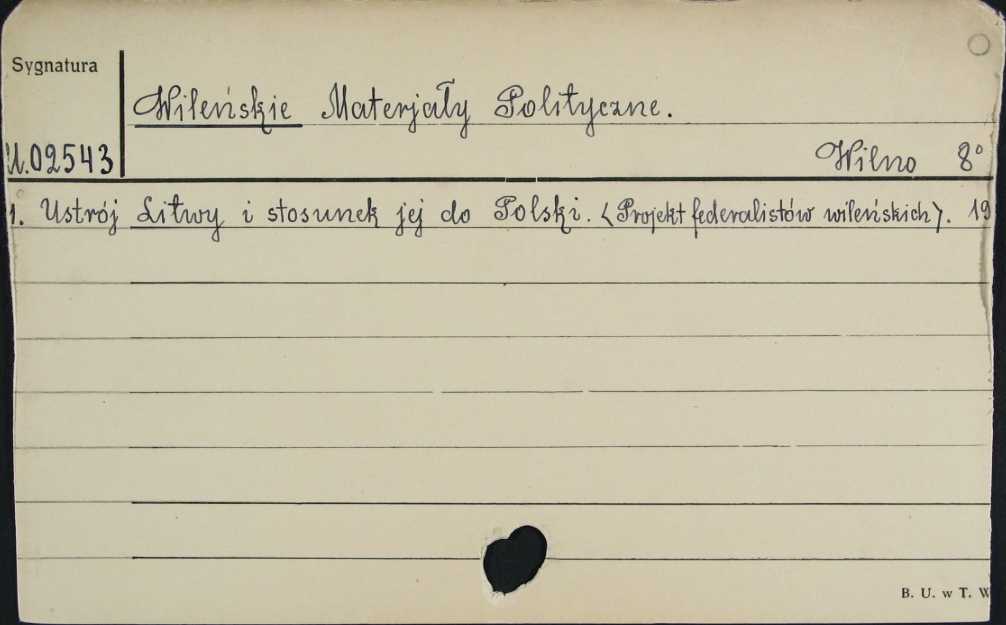 Sygnatura
Wileńskie Materjały Polityczne.
U.02543
Wilno 8°
1. Ustrój Litwy i stosunek jej do Polski. <Projekt federalistów wileńskich>. 19
B. U. w T. W